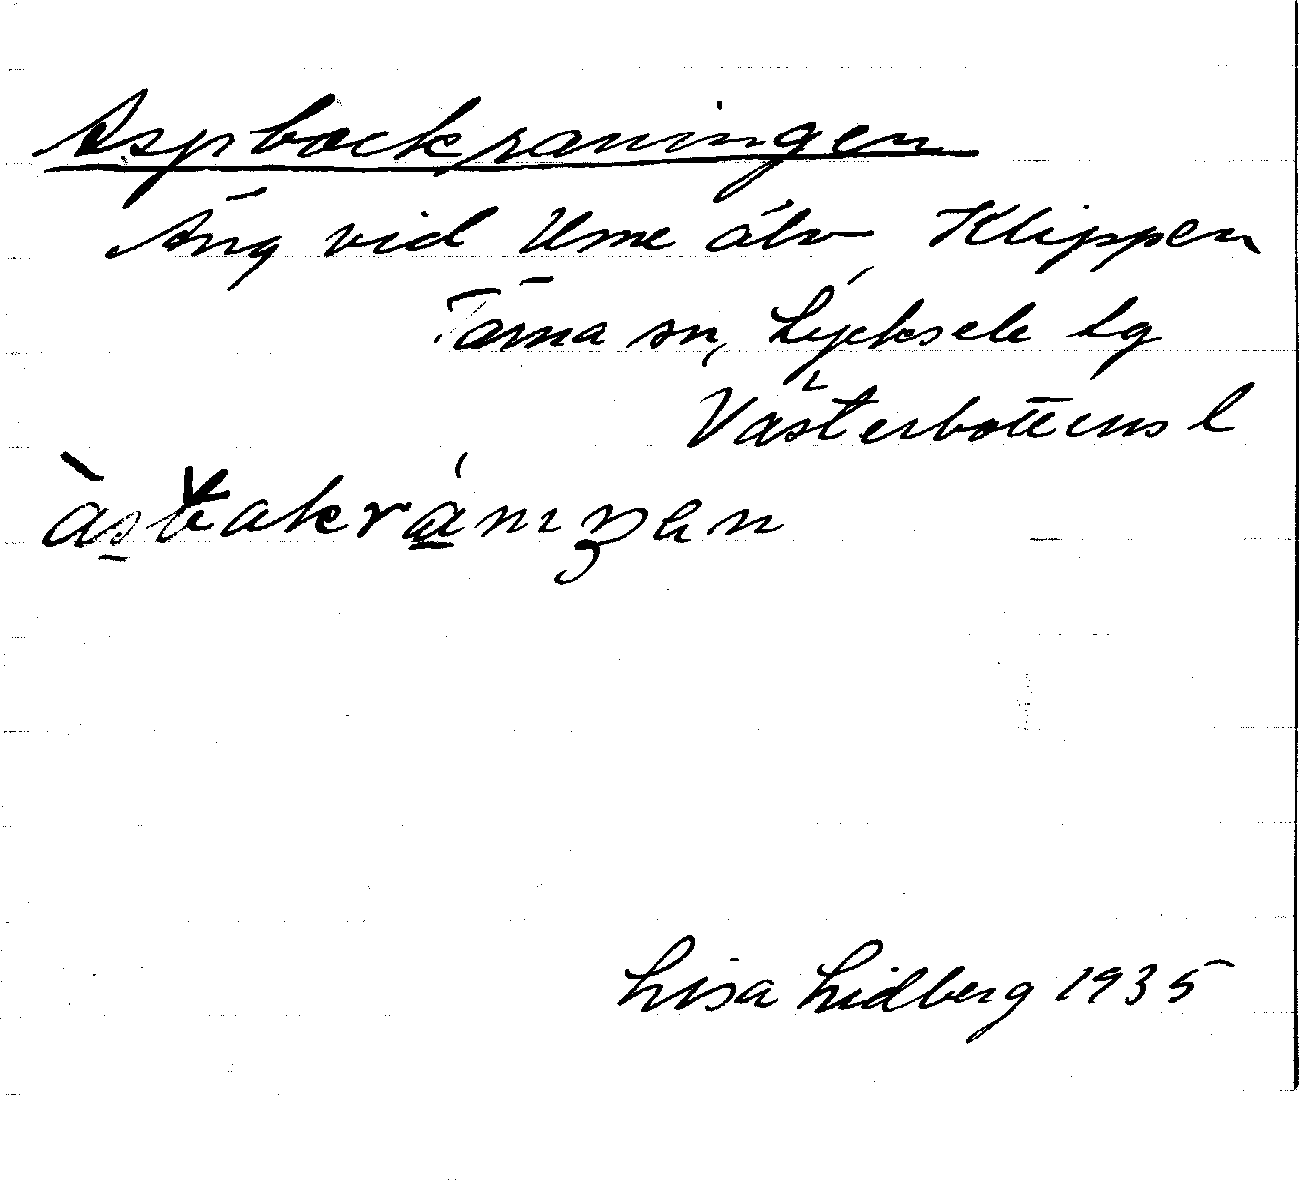 Aspbackraningen
Äng vid Ume älv Klippen
Tärna sn, Lycksele lg
Västerbottens l
Lisa Lidberg 1935